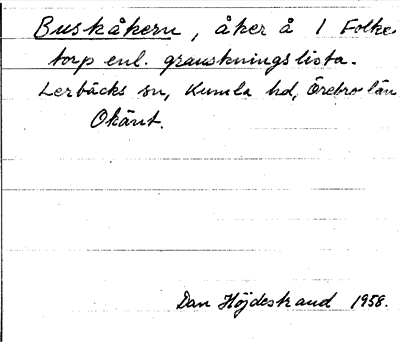 Buskåkern, åker å 1 Folke-
torp enl. granskningslista.
Lerbäcks sn, Kumla hd, Örebro län
Okänt.
Dan Höjdestrand 1958.